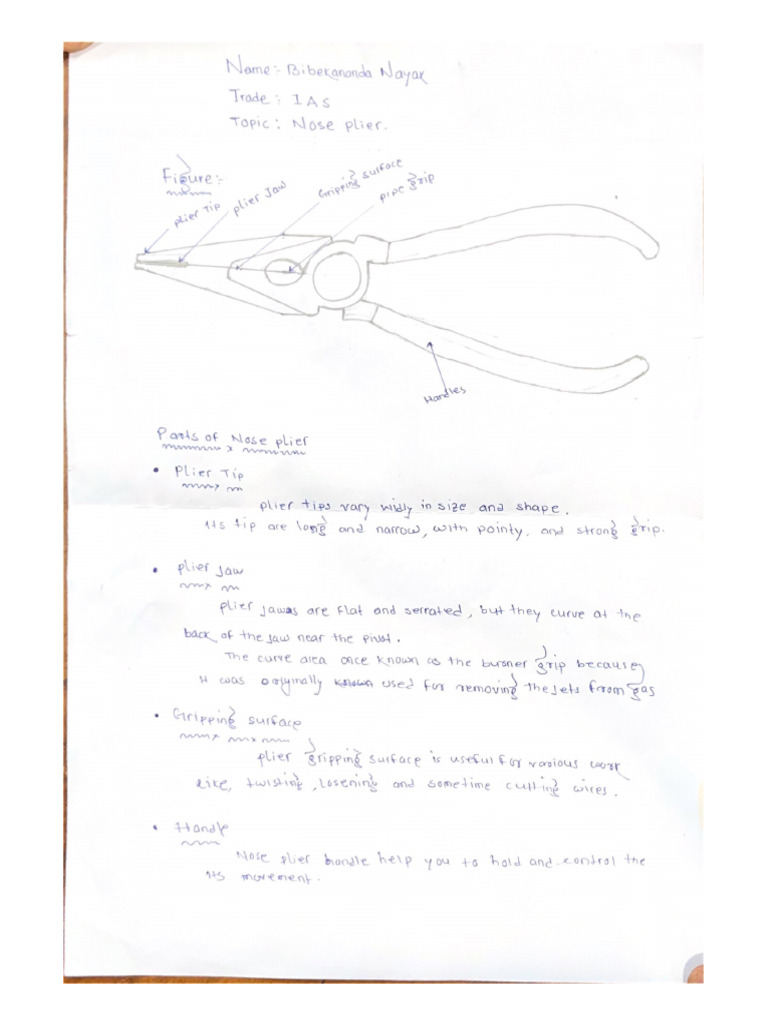 Name:- Bibekananda Nayak
Trade: IAS
Topic: Nose plier.
Figure:-
plier Tip
plier Jaw
Gripping surface
pipe grip
Handles
Parts of Nose plier
• Plier Tip
plier tips vary widly in size and shape.
Its tip are long and narrow, with pointy, and strong grip.
• plier Jaw
plier jawas are flat and serrated, but they curve at the
back of the jaw near the pivot.
The curve area once known as the burner grip because
it was originally known used for removing the jets from gas
• Gripping surface
plier gripping surface is useful for various work
like, twisting, losening and sometime cutting wires.
• Handle
Nose plier handle help you to hold and control the
its movement.